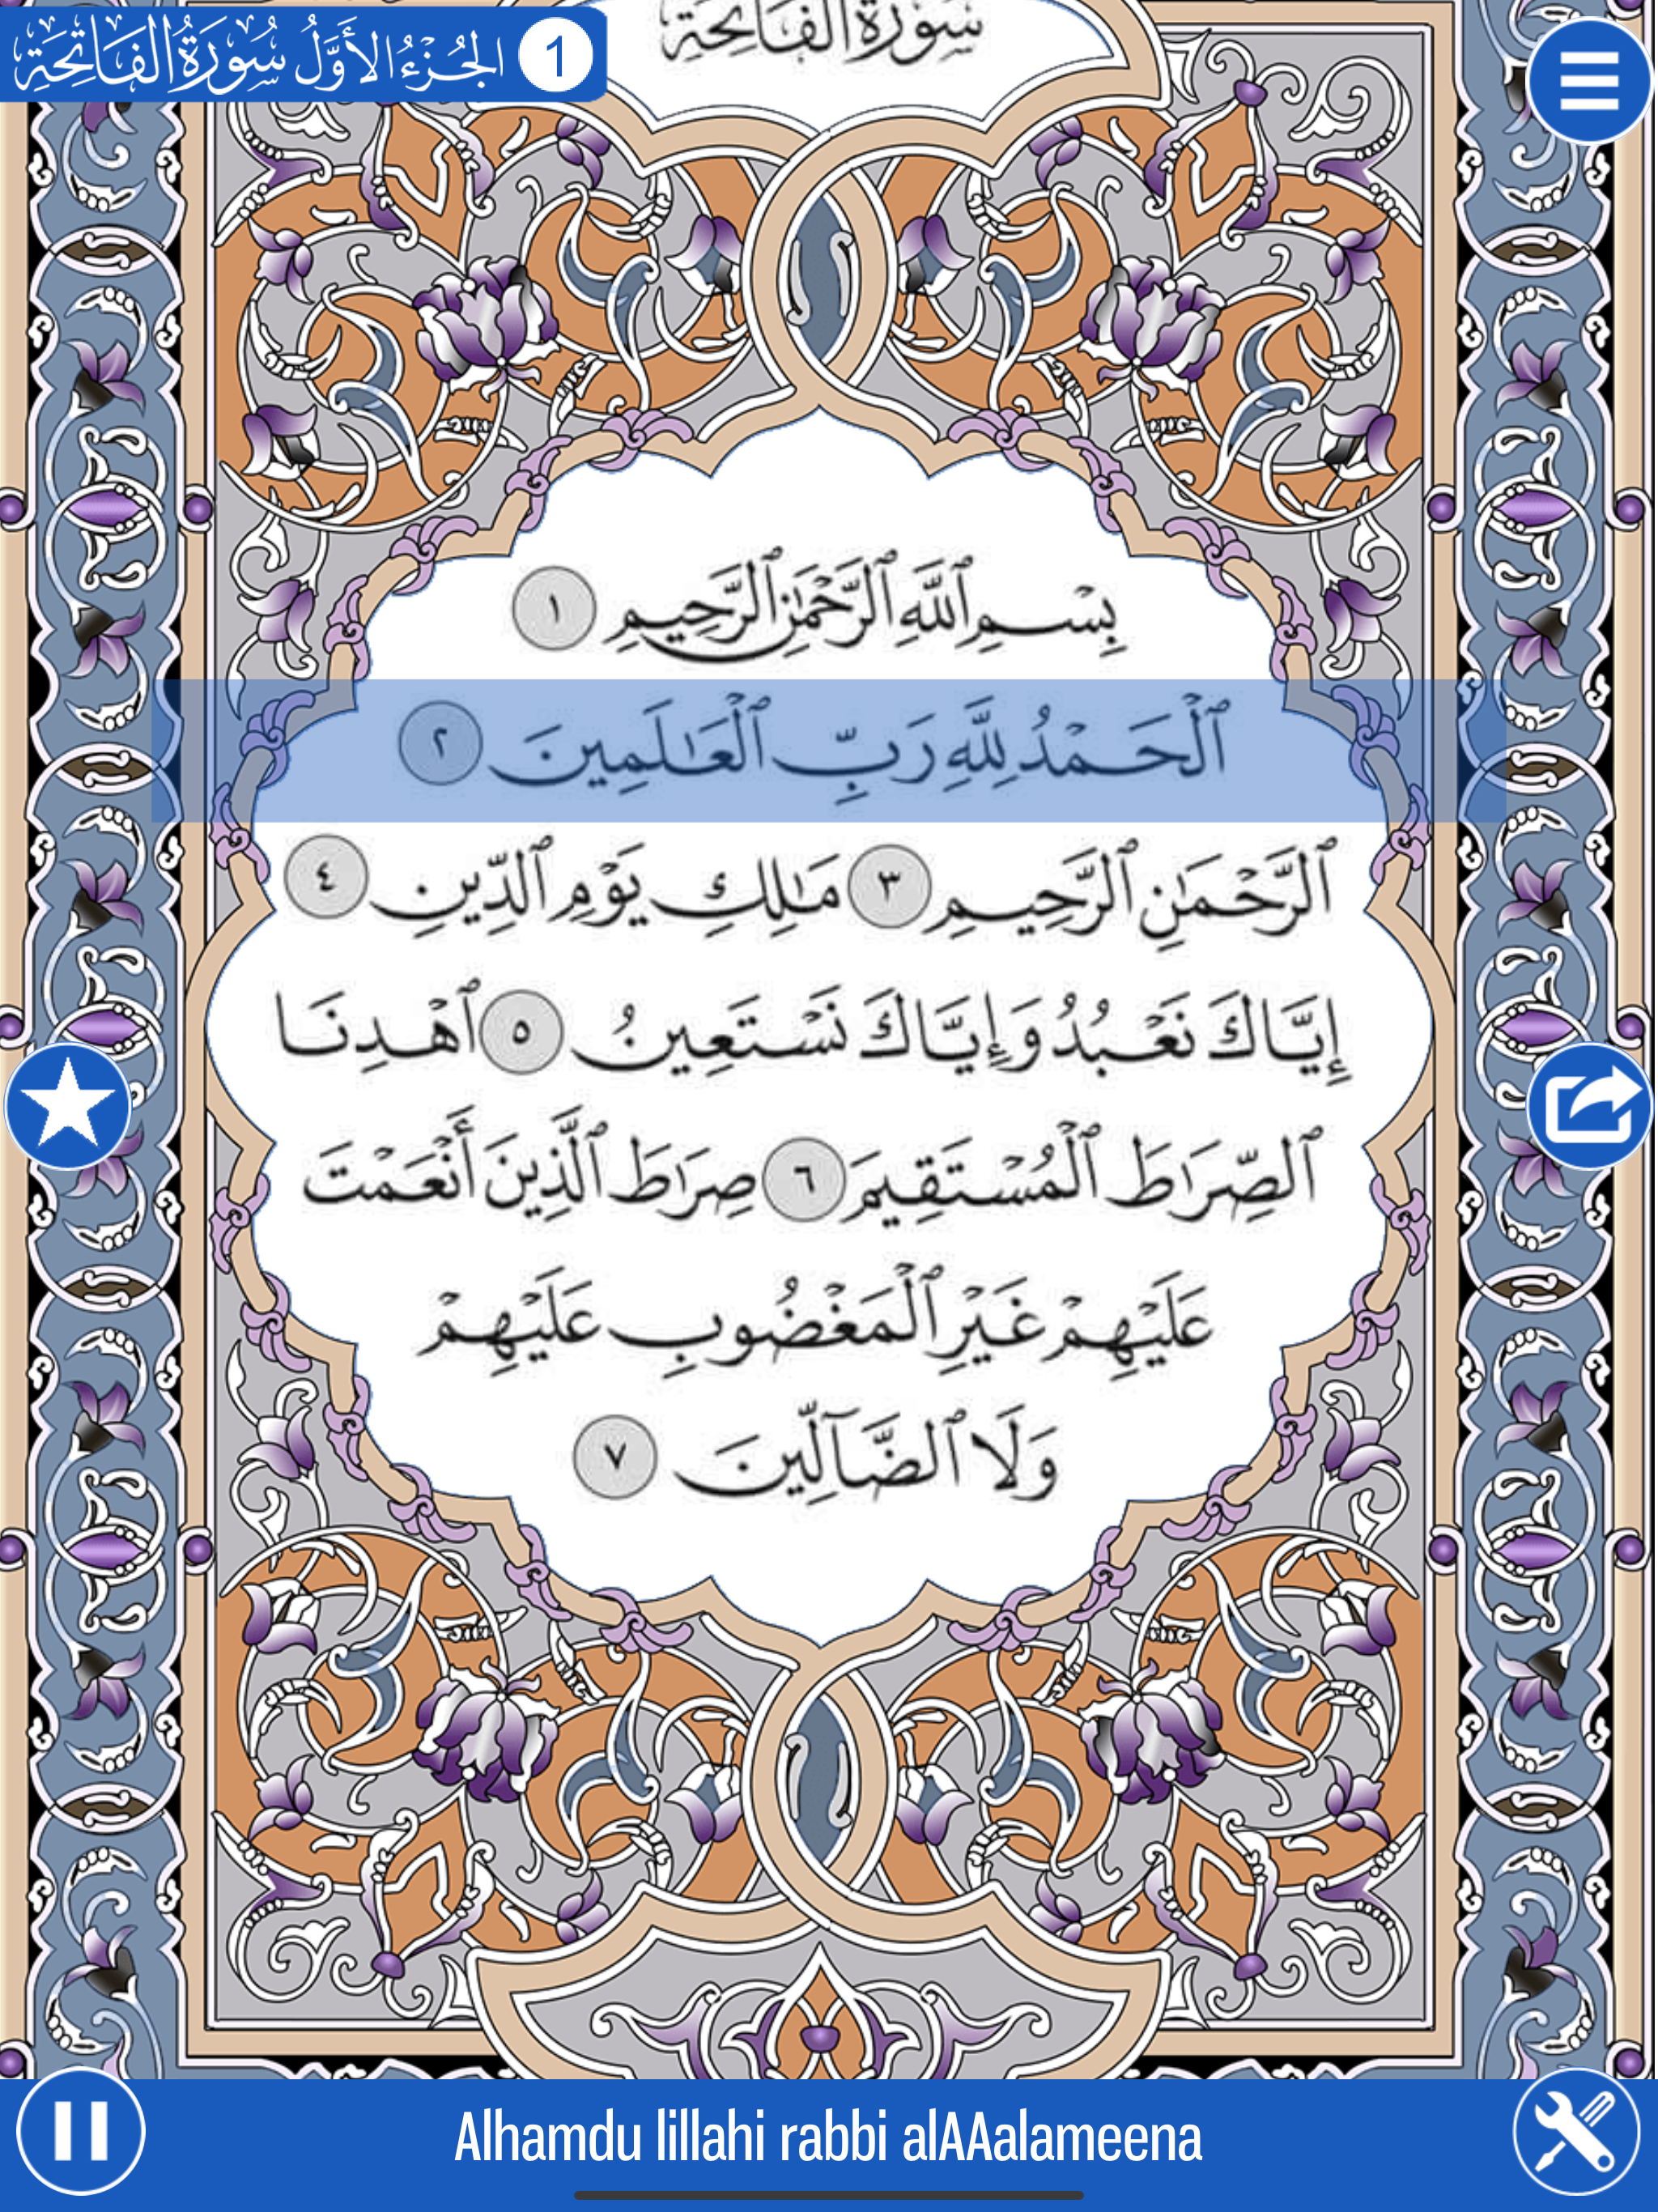 الجُزْءُ الأَوَّلُ سُورَةُ الفَاتِحَةِ 1
سُورَةُ الفَاتِحَةِ
بِسْمِ ٱللَّهِ ٱلرَّحْمَٰنِ ٱلرَّحِيمِ ١
ٱلْحَمْدُ لِلَّهِ رَبِّ ٱلْعَٰلَمِينَ ٢
ٱلرَّحْمَٰنِ ٱلرَّحِيمِ ٣ مَٰلِكِ يَوْمِ ٱلدِّينِ ٤
إِيَّاكَ نَعْبُدُ وَإِيَّاكَ نَسْتَعِينُ ٥ ٱهْدِنَا
ٱلصِّرَٰطَ ٱلْمُسْتَقِيمَ ٦ صِرَٰطَ ٱلَّذِينَ أَنْعَمْتَ
عَلَيْهِمْ غَيْرِ ٱلْمَغْضُوبِ عَلَيْهِمْ
وَلَا ٱلضَّآلِّينَ ٧
Alhamdu lillahi rabbi alAAalameena